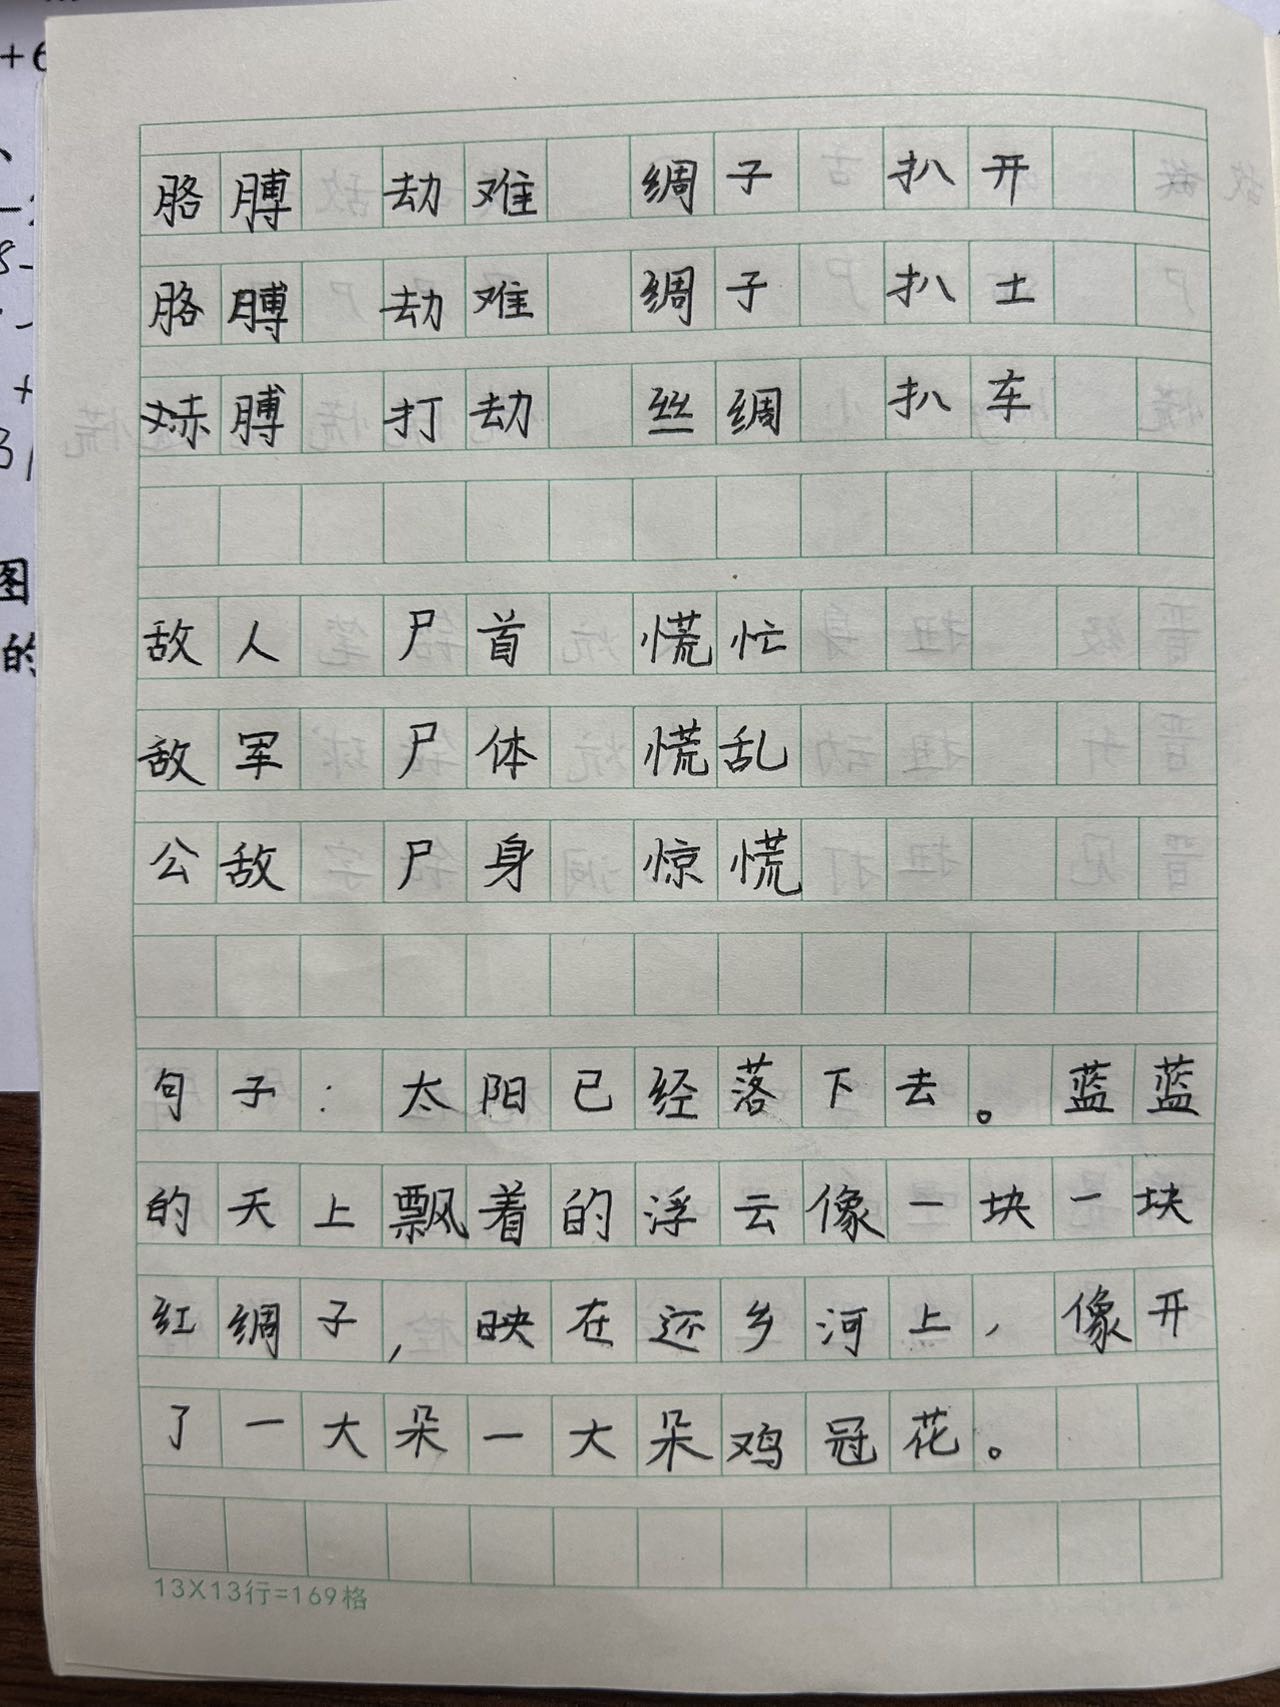 胳膊 劫难 绸子 扒开
胳膊 劫难 绸子 扒土
赤膊 打劫 丝绸 扒车
敌人 尸首 慌忙
敌军 尸体 慌乱
公敌 尸身 惊慌
句子：太阳已经落下去。蓝蓝
的天上飘着的浮云像一块一块
红绸子，映在还乡河上，像开
了一大朵一大朵鸡冠花。
13X13行=169格
+6
图
的